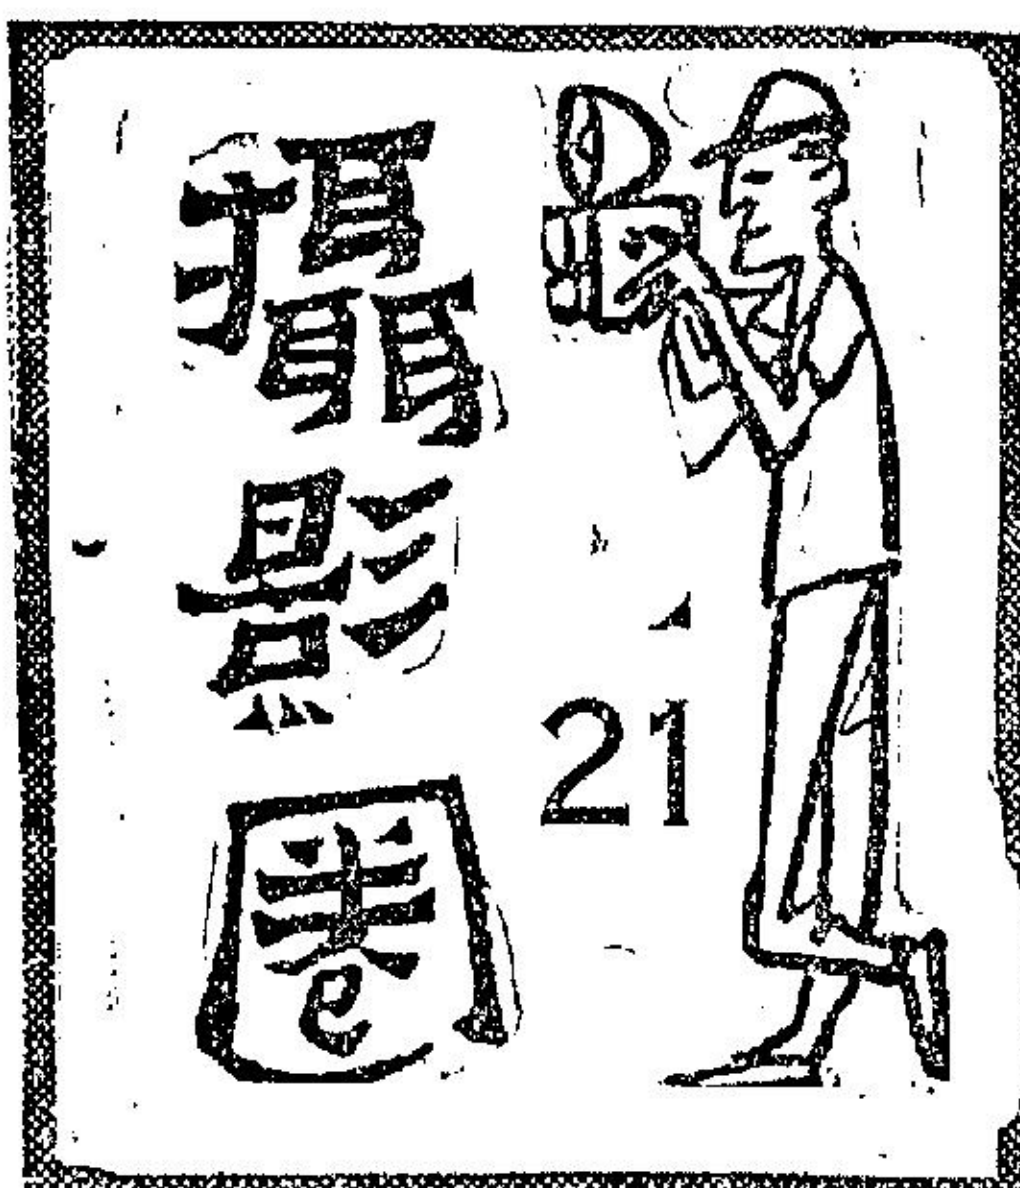 攝影圈
21